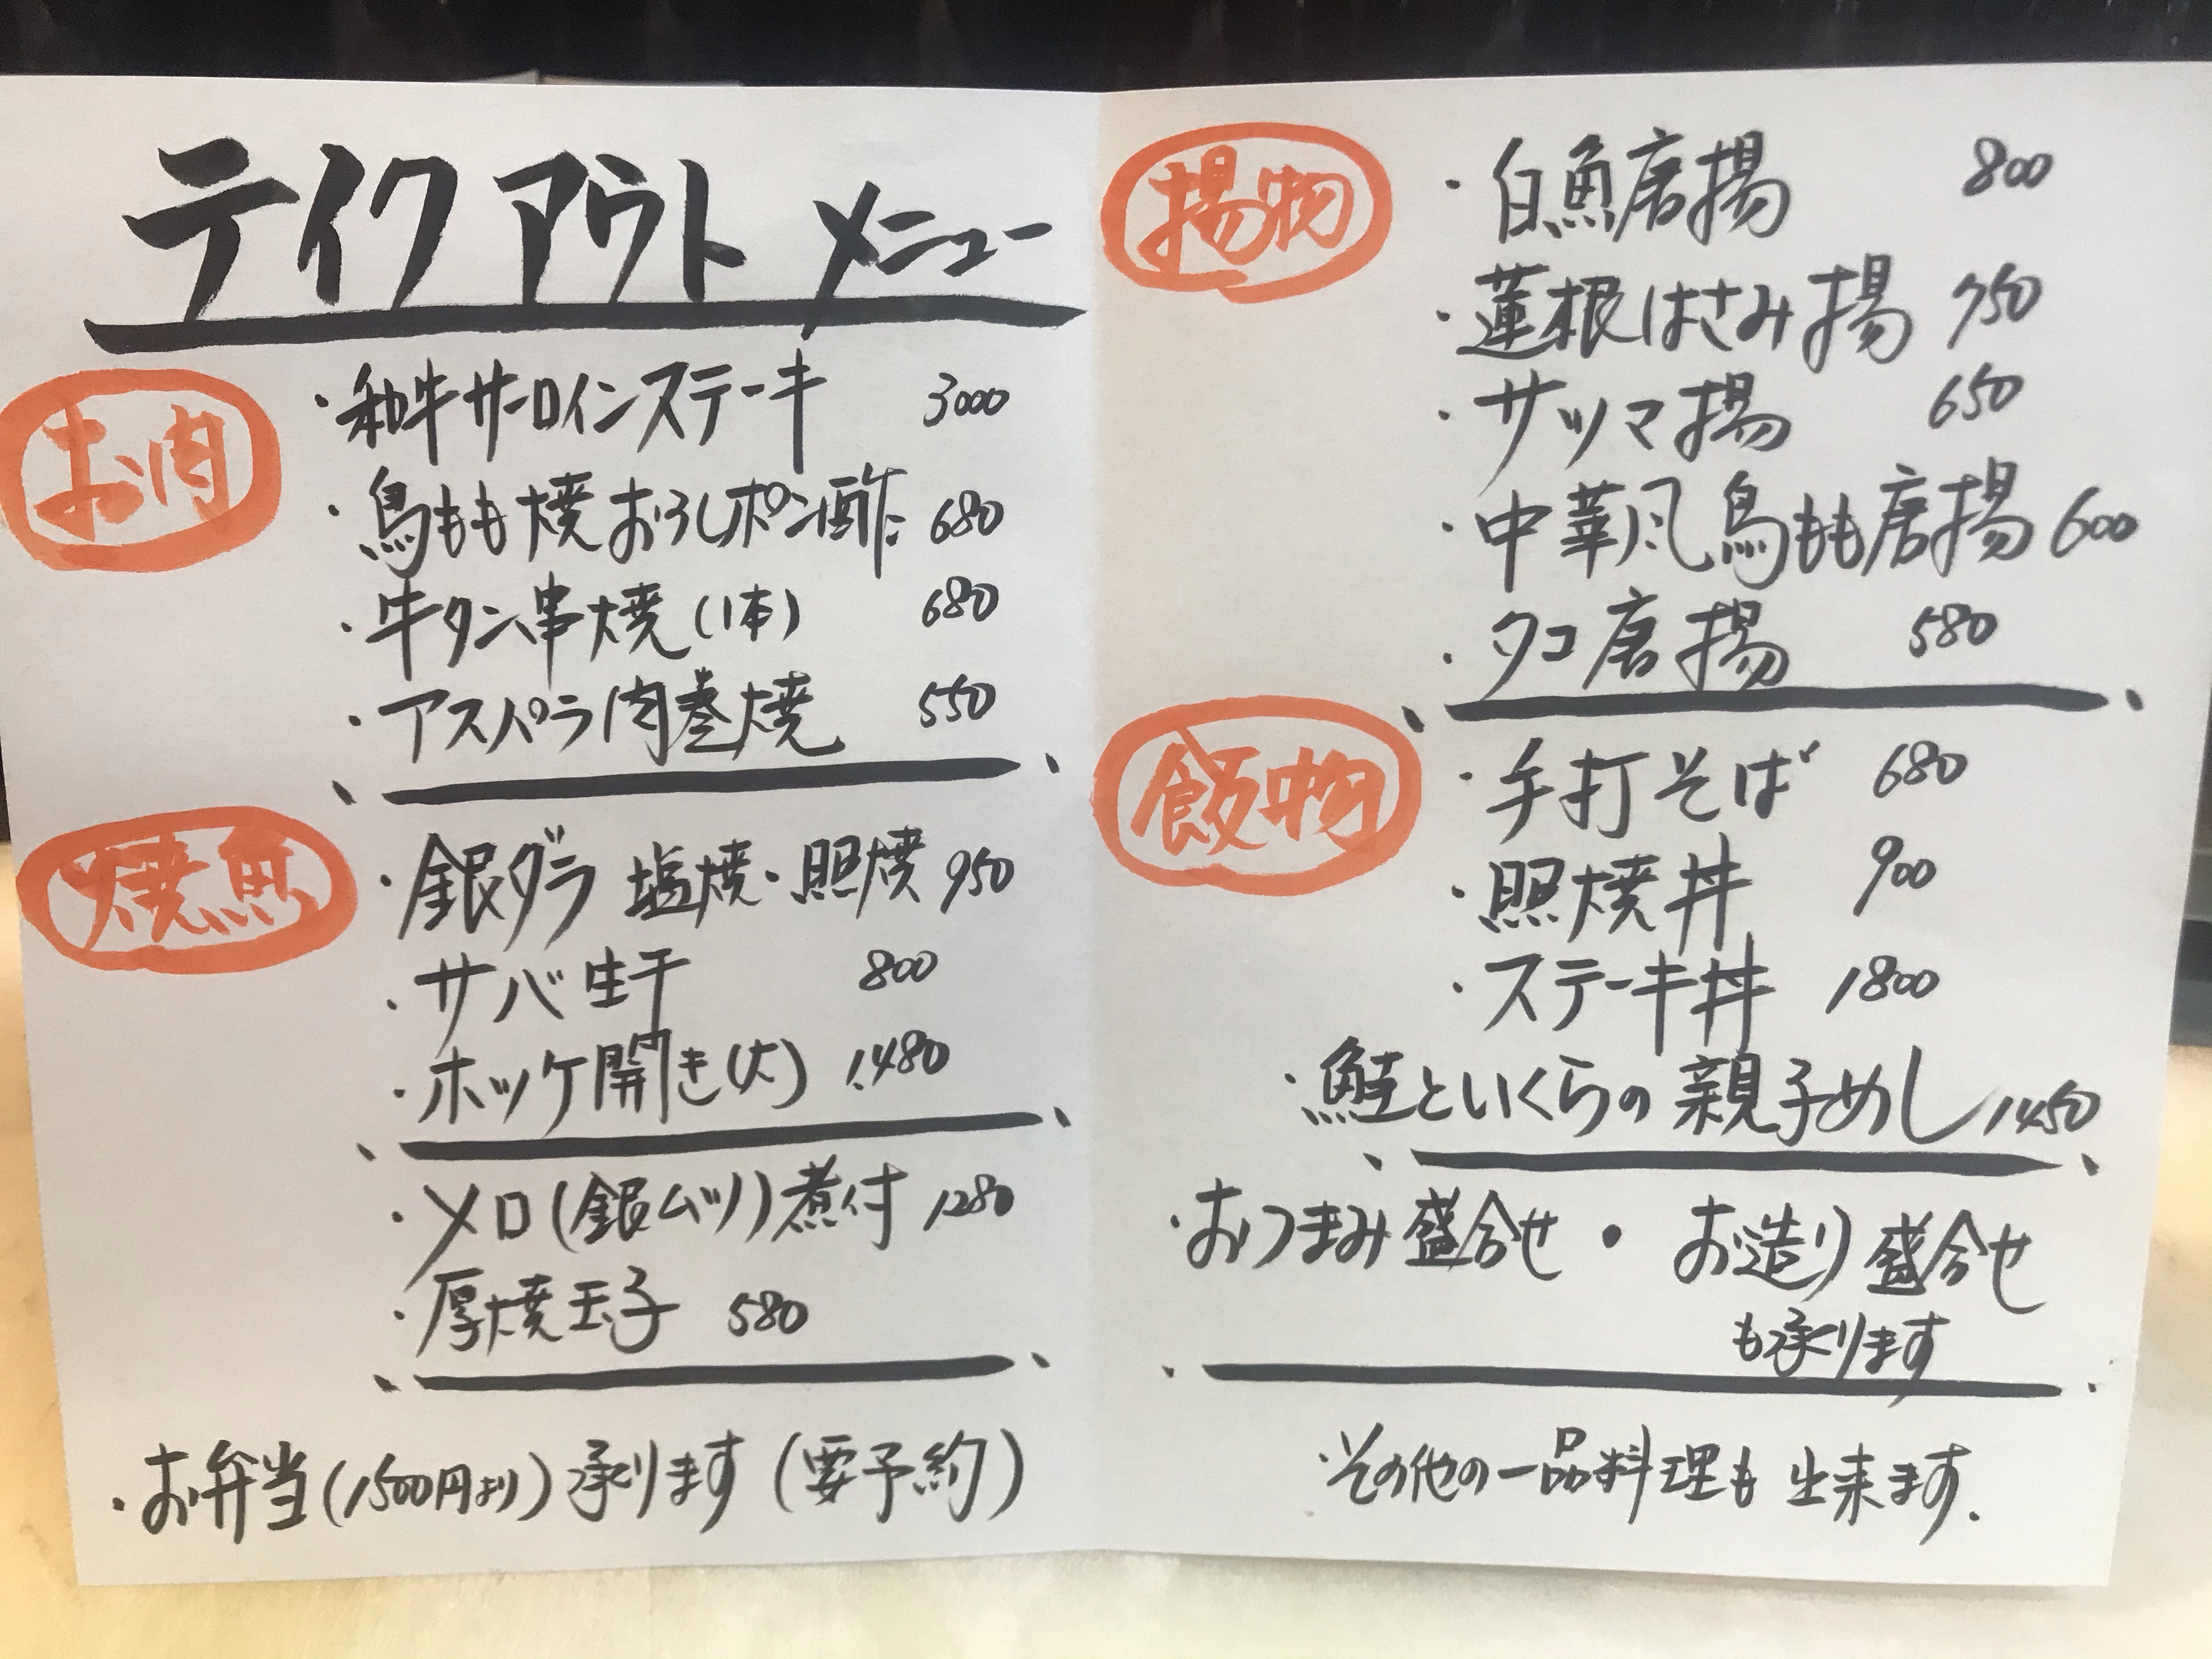 テイクアウトメニュー
お肉
・和牛サーロインステーキ 3000
・鳥もも焼おろしポン酢 680
・牛タン串焼(1本) 680
・アスパラ肉巻焼 550
焼魚
・銀ダラ 塩焼・照焼 950
・サバ生干 800
・ホッケ開き(大) 1,480
・メロ(銀ムツ)煮付 1280
・厚焼玉子 580
・お弁当(1500円より)承ります(要予約)
揚物
・白魚唐揚 800
・蓮根はさみ揚 750
・サツマ揚 650
・中華風鳥もも唐揚 600
・タコ唐揚 580
飯物
・手打そば 680
・照焼丼 900
・ステーキ丼 1800
・鮭といくらの親子めし 1450
・おつまみ盛合せ・お造り盛合せ
も承ります
・その他の一品料理も出来ます.